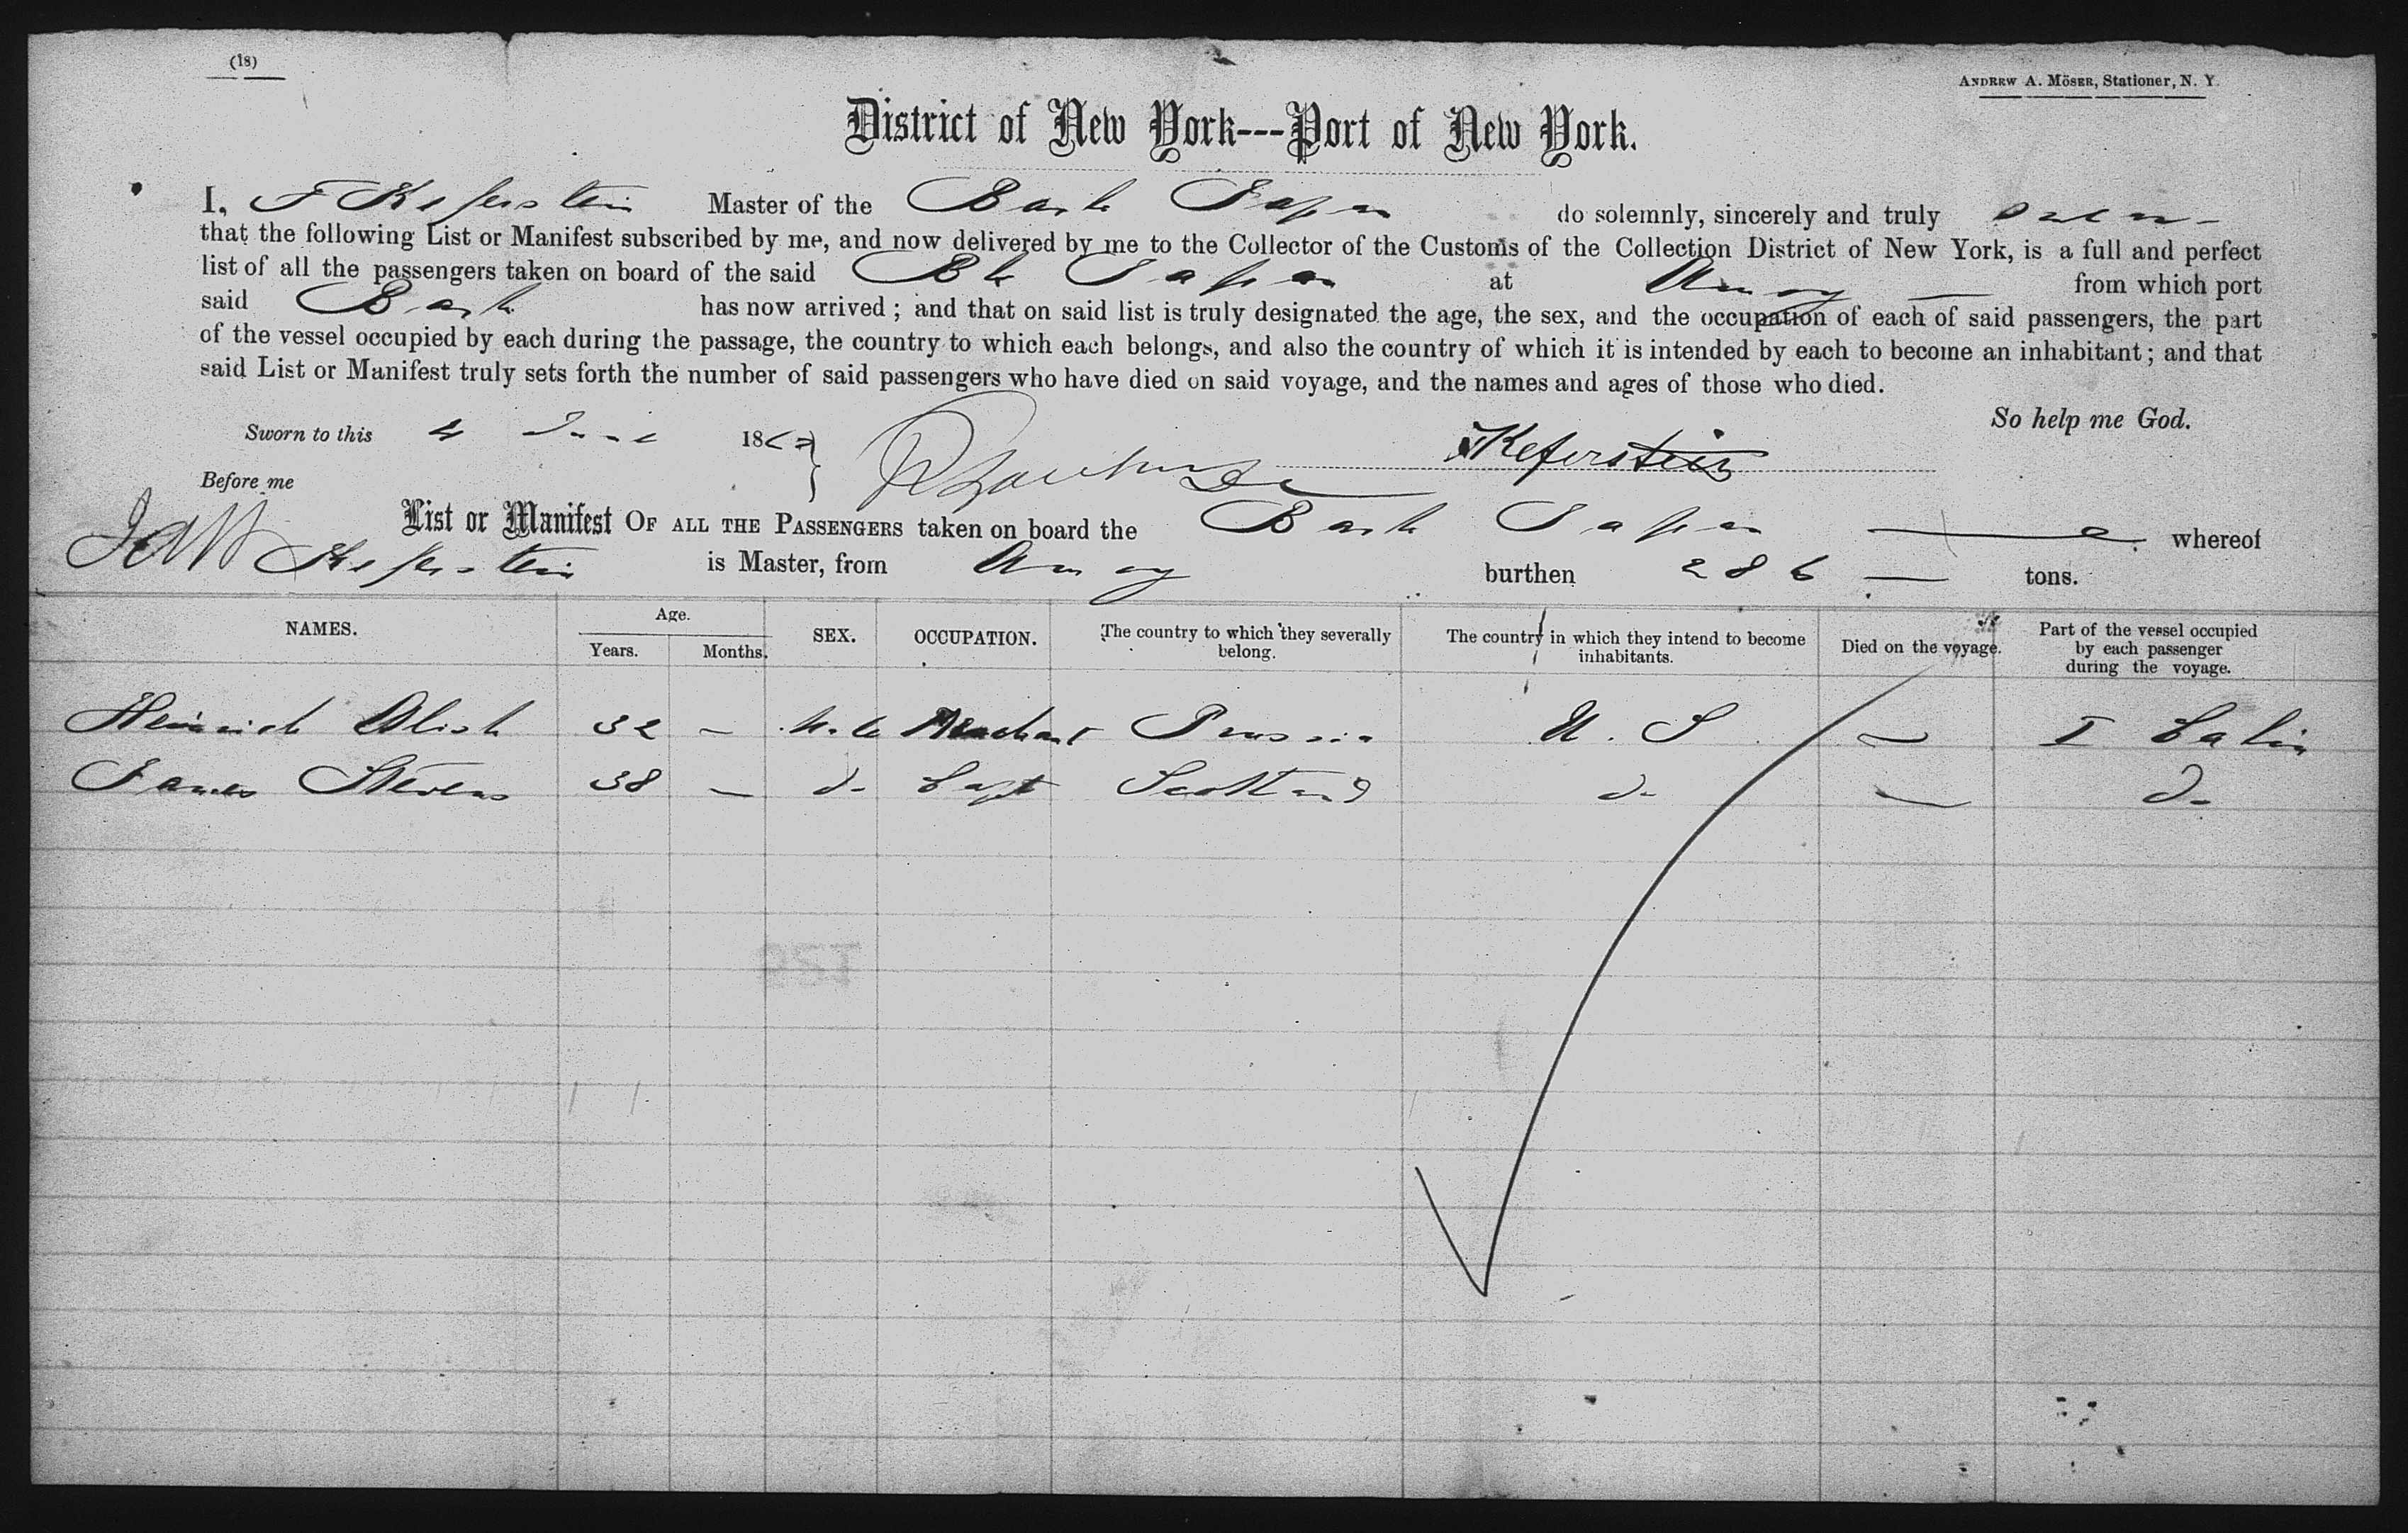 (18)
ANDREW A. MÖSER, Stationer, N. Y.
District of New York---Port of New York.
I, F Keferstein Master of the Bark Japan do solemnly, sincerely and truly swear
that the following List or Manifest subscribed by me, and now delivered by me to the Collector of the Customs of the Collection District of New York, is a full and perfect
list of all the passengers taken on board of the said Bk Japan at Amoy from which port
said Bark has now arrived ; and that on said list is truly designated the age, the sex, and the occupation of each of said passengers, the part
of the vessel occupied by each during the passage, the country to which each belongs, and also the country of which it is intended by each to become an inhabitant ; and that
said List or Manifest truly sets forth the number of said passengers who have died on said voyage, and the names and ages of those who died.
So help me God.
Sworn to this 4 June 18
Keferstein
Before me
List or Manifest OF ALL THE PASSENGERS taken on board the Bark Japan whereof
Keferstein is Master, from Amoy burthen 286 tons.
NAMES. Age. Years. Months. SEX. OCCUPATION. The country to which they severally belong. The country in which they intend to become inhabitants. Died on the voyage. Part of the vessel occupied by each passenger during the voyage.
Heinrich 32 – Male Merchant Prussia U. S — I Cabin
James Stevens 38 – do Capt Scotland do — do